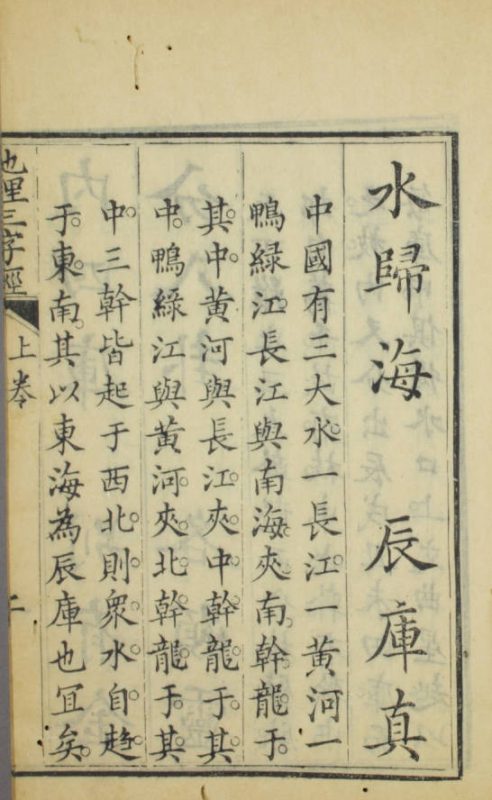 水歸海 辰庫真
中國有三大水一長江一黃河一
鴨綠江長江與南海夾南幹龍于
其中黃河與長江夾中幹龍于其
中鴨綠江與黃河夾北幹龍于其
中三幹皆起于西北則衆水自趋
于東南其以東海為辰庫也宜矣
地理三字經 上卷 二